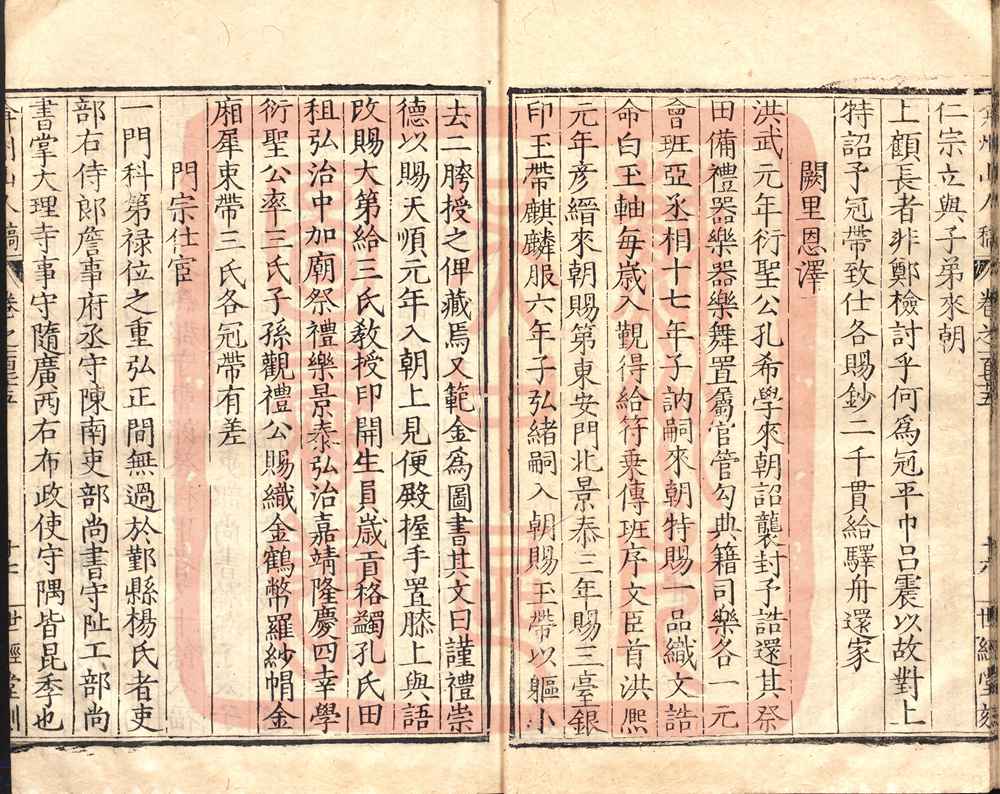 仁宗立與子弟來朝
上顧長者非鄭檢討乎何爲冠平巾呂震以故對上
特詔予冠帶致仕各賜鈔二千貫給驛舟還家
闕里恩澤
洪武元年衍聖公孔希學來朝詔襲封予誥還其祭
田備禮器樂器樂舞置屬官管勾典籍司樂各一元
會班亞丞相十七年子訥嗣來朝特賜一品織文誥
命白玉軸每歲入覲得給符乗傳班序文臣首洪熈
元年彦縉來朝賜第東安門北景泰三年賜三臺銀
印玉帶麒麟服六年子弘緒嗣入朝賜玉帶以軀小
去二胯授之俾藏焉又範金爲圖書其文曰謹禮崇
德以賜天順元年入朝上見便殿握手置膝上與語
改賜大第給三氏教授印開生員歲貢格蠲孔氏田
租弘治中加廟祭禮樂景泰弘治嘉靖隆慶四幸學
衍聖公率三氏子孫觀禮公賜織金鶴幣羅紗帽金
廂犀束帶三氏各冠帶有差
門宗仕宦
一門科第禄位之重弘正間無過於鄞縣楊氏者吏
部右侍郎詹事府丞守陳南吏部尚書守阯工部尚
書掌大理寺事守隨廣西右布政使守隅皆昆季也
卷之
世經堂刻